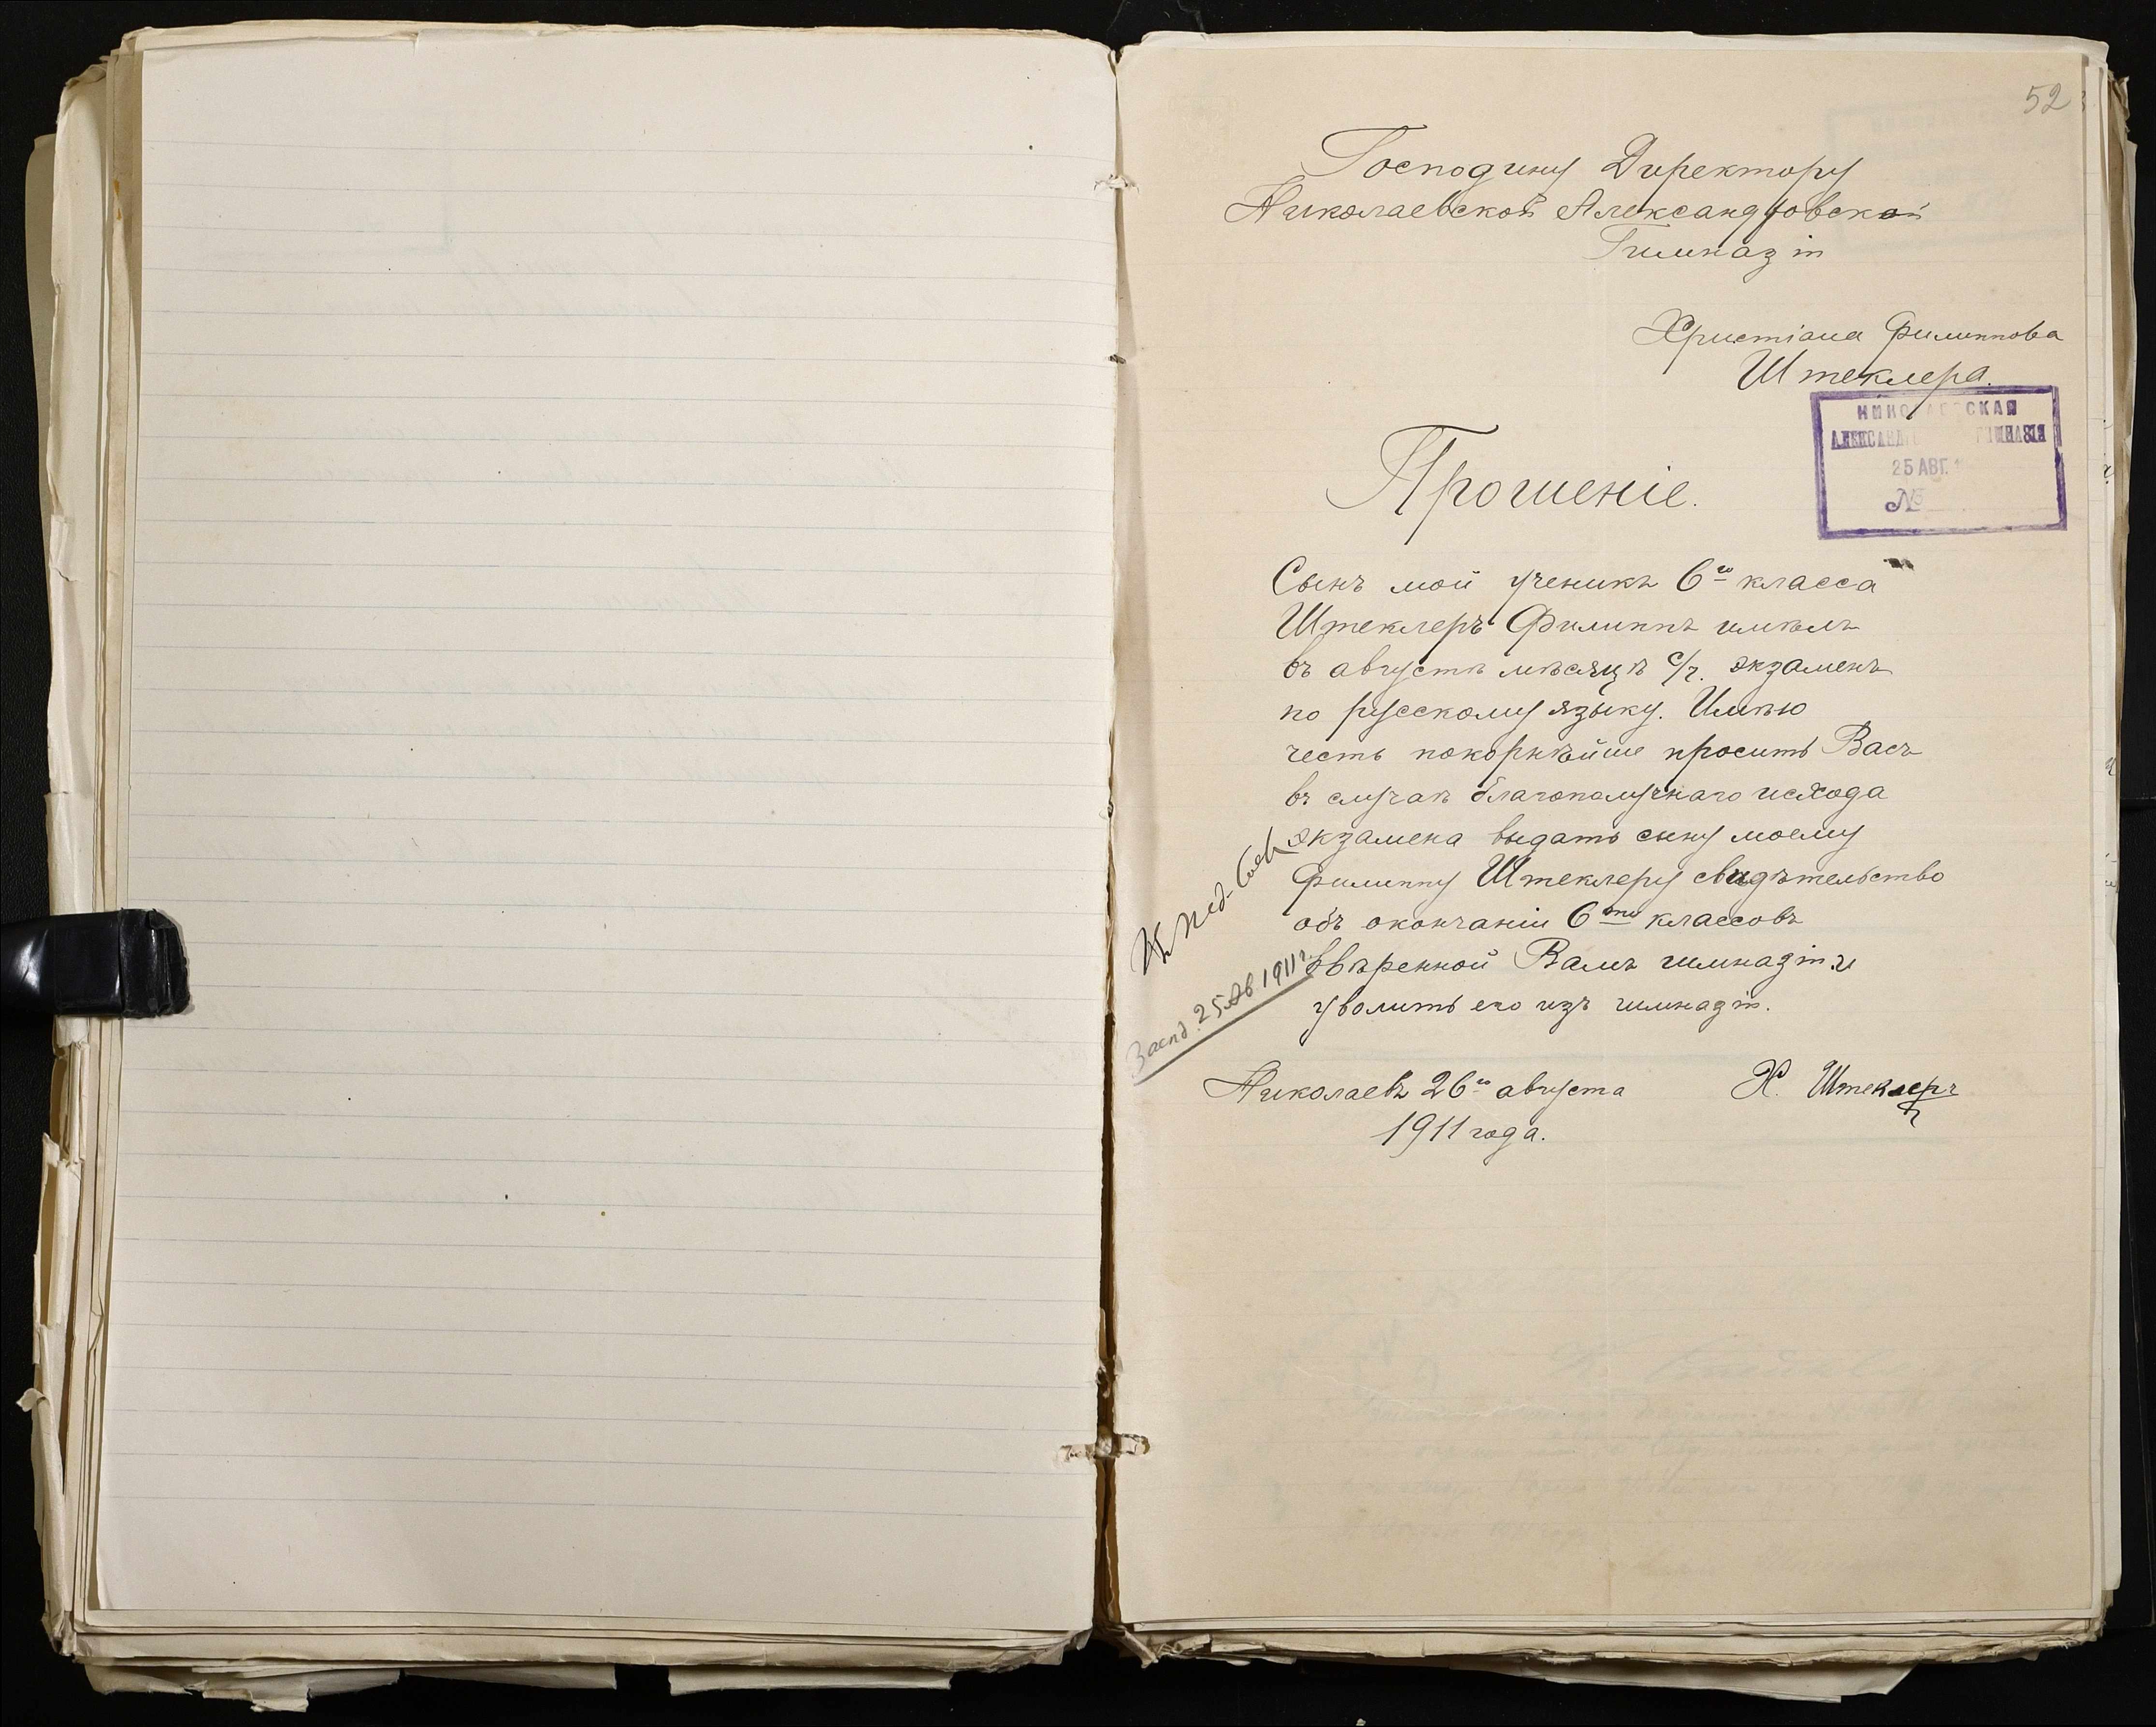 52
Господину Директору
Николаевской Александровской
Гимназіи
Христіана Филиппова
Штеклера.
НИКО СКАЯ
АЛЕКСАНД ГИМНАЗІЯ
25 АВГ.
№
Прошеніе.
Сынъ мой ученикъ 6го класса
Штеклеръ Филиппъ имѣлъ
въ августѣ мѣсяцѣ с/г. экзаменъ
по русскому языку. Имѣю
честь покорнѣйше просить Васъ
въ случаѣ благополучнаго исхода
экзамена выдать сыну моему
Филиппу Штеклеру свидѣтельство
объ окончаніи 6ти классовъ
ввѣренной Вамъ гимназіи и
уволить его изъ гимназіи.
Въ Пед. Сов.
25 Ав 1911 г.
Николаевъ 26го августа
1911 года.
Х. Штеклеръ